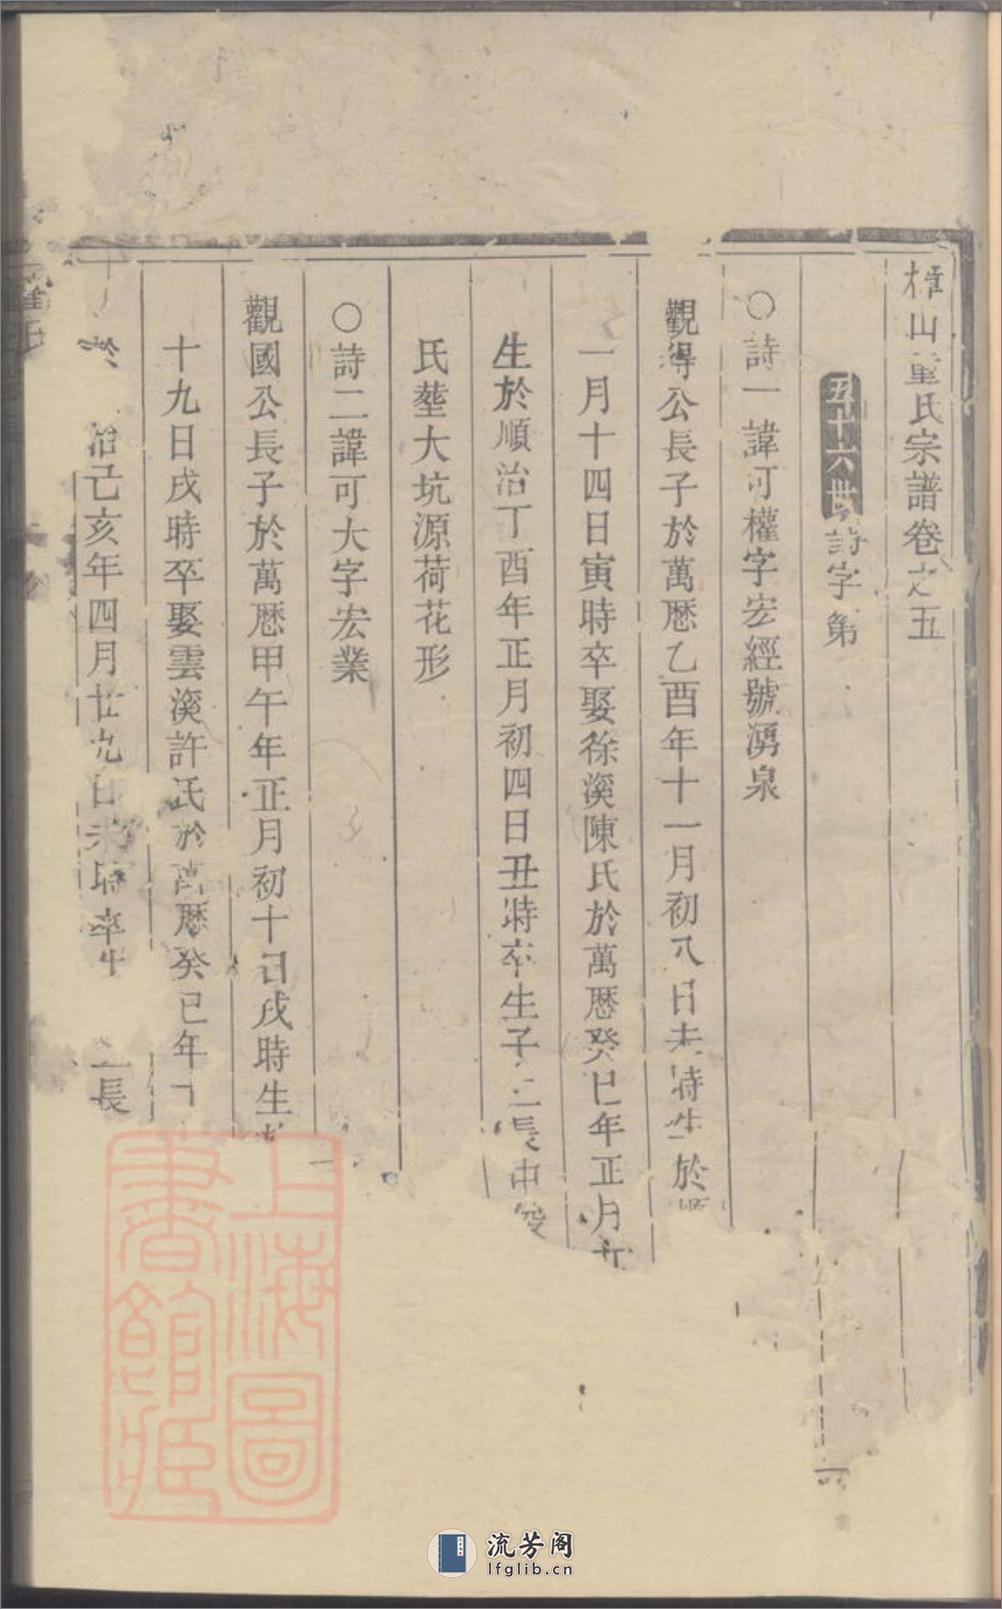 雄山董氏宗譜卷之五
五十六世詩字第
○詩一諱可權字宏經號湧泉
觀得公長子於萬曆乙酉年十一月初八日未時生於順
一月十四日寅時卒娶徐溪陳氏於萬曆癸巳年正月
生於順治丁酉年正月初四日丑時卒生子二長中
氏塟大坑源荷花形
○詩二諱可大字宏業
觀國公長子於萬曆甲午年正月初十日戌時生
十九日戌時卒娶雲溪許氏於萬曆癸巳年
於 治己亥年四月廿九日未時卒 長
上海圖書館藏
流芳阁
lfglib.cn